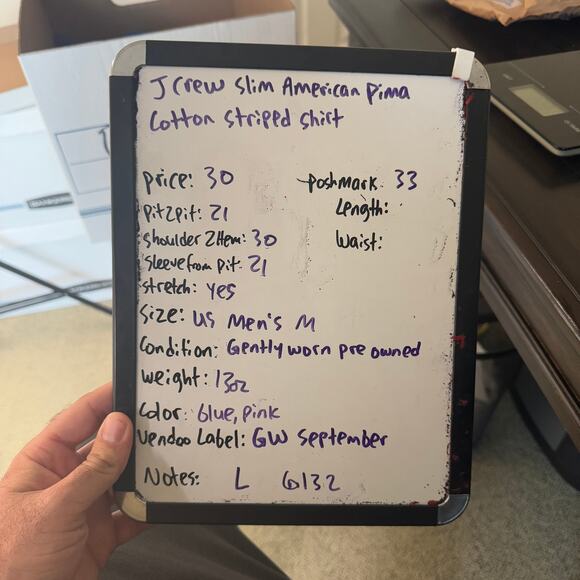 J Crew Slim American Pima
Cotton Striped Shirt
Price: 30
Poshmark: 33
Pit2Pit: 21
Length:
Shoulder2Hem: 30
Waist:
Sleeve from Pit: 21
Stretch: yes
Size: US Men's M
Condition: Gently worn pre owned
Weight: 13oz
Color: blue, pink
Vendoo Label: GW September
Notes: L 6132